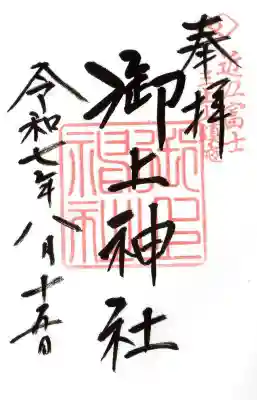 近江富士
奉拝
御上神社
御上
神社
令和七年八月十五日